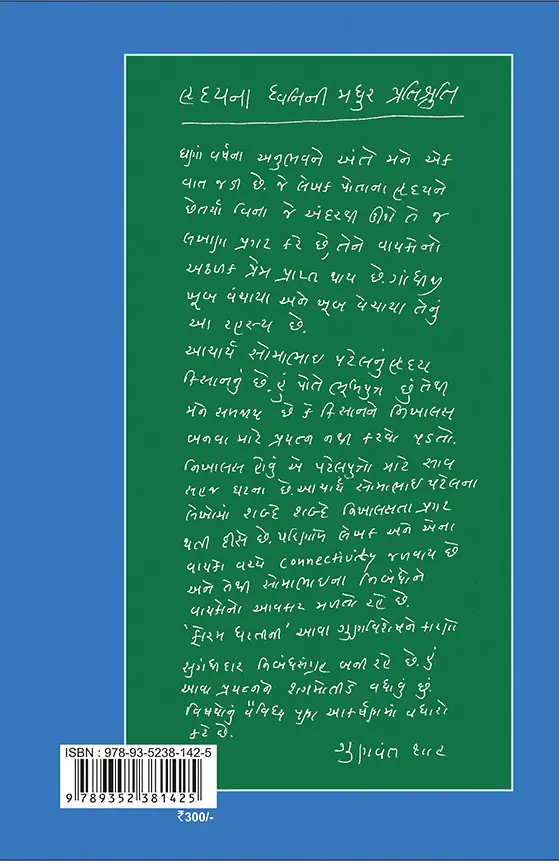 હૃદયના ધ્વનિની મધુર પ્રતિશ્રુતિ
ઘણાં વર્ષના અનુભવને અંતે મને એક
વાત જડી છે. જે લેખક પોતાના હૃદયને
છેતર્યા વિના જે અંદરથી ઊગે તે જ
લખાણ પ્રગટ કરે છે, તેને વાચકોનો
અઢળક પ્રેમ પ્રાપ્ત થાય છે. ગાંધીજી
ખૂબ વંચાયા અને ખૂબ વેચાયા તેનું
આ રહસ્ય છે.
આચાર્ય સોમાભાઇ પટેલનું હૃદય
કિસાનનું છે. હું પોતે ભૂમિપુત્ર છું તેથી
મને સમજાય છે કે કિસાનને નિખાલસ
બનવા માટે પ્રયત્ન નથી કરવો પડતો.
નિખાલસ હોવું એ પટેલપુત્રો માટે સાવ
સહજ ઘટના છે. આચાર્ય સોમાભાઇ પટેલના
લેખોમાં શબ્દે શબ્દે નિખાલસતા પ્રગટ
થતી દીસે છે. પરિણામે લેખક અને એના
વાચકો વચ્ચે connectivity જળવાય છે
અને તેથી સોમાભાઇના નિબંધોને
વાચકોનો આવકાર મળતો રહે છે.
'ફોરમ ધરતીની' આવા ગુણવિશેષને કારણે
સુગંધીદાર નિબંધસંગ્રહ બની રહે છે. હું
આવા પ્રયત્નને શગમોતીડે વધાવું છું.
વિષયોનું વૈવિધ્ય પણ આકર્ષણમાં વધારો
કરે છે.
ગુણવંત શાહ
ISBN : 978-93-5238-142-5
9 789352 381425
₹300/-